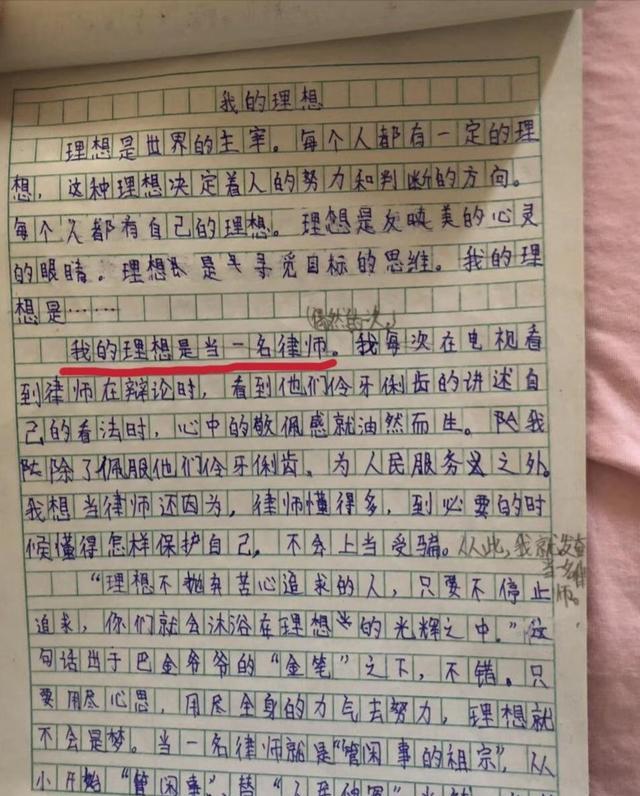 我的理想
理想是世界的主宰。每个人都有一定的理
想，这种理想决定着人的努力和判断的方向。
每个人都有自己的理想。理想是反映美的心灵
的眼睛。理想是寻觅目标的思维。我的理
想是……
我的理想是当一名律师。我每次在电视看
到律师在辩论时，看到他们伶牙俐齿的讲述自
己的看法时，心中的敬佩感就油然而生。除我
除了佩服他们伶牙俐齿、为人民服务之外。
我想当律师还因为，律师懂得多，到必要的时
候懂得怎样保护自己，不会上当受骗。从此，我就发奋
当名律
师。
“理想不抛弃苦心追求的人，只要不停止
追求，你们就会沐浴在理想的光辉之中。”这
句话出于巴金爷爷的“金笔”之下，不错。只
要用尽心思，用尽全身的力气去努力，理想就
不会是梦。当一名律师就是“管闲事的祖宗”，从
小开始“管闲事”，替